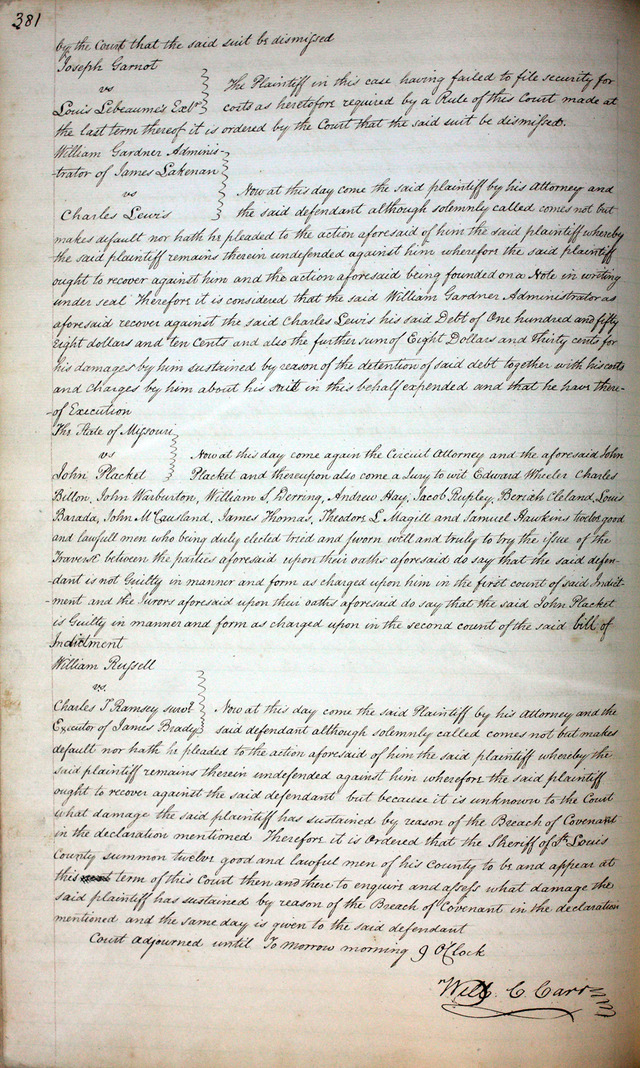 381
by the Court that the said suit be dismissed
Joseph Garnot
vs
The Plaintiff in this case having failed to file security for
Louis Lebeaumes Exr
costs as heretofore required by a Rule of this Court made at
the last term thereof it is ordered by the Court that the said suit be dismissed.
William Gardner Adminis-
-trator of James Lakenan
vs
Now at this day come the said plaintiff by his Attorney and
Charles Lewis
the said defendant although solemnly called comes not but
makes default nor hath he pleaded to the action aforesaid of him the said plaintiff whereby
the said plaintiff remains therein undefended against him wherefore the said plaintiff
ought to recover against him and the action aforesaid being founded on a Note in writing
under seal Therefore it is considered that the said William Gardner Administrator as
aforesaid recover against the said Charles Lewis his said Debt of One hundred and fifty
Eight dollars and ten Cents and also the further sum of Eight Dollars and Thirty cents for
his damages by him sustained by reason of the detention of said debt together with his costs
and charges by him about his suit in this behalf expended and that he have there-
-of Execution
The State of Missouri
vs
Now at this day come again the Circuit Attorney and the aforesaid John
John Placket
Placket and thereupon also come a Jury to wit Edward Wheeler Charles
Billon, John Warburton, William S. Derring, Andrew Hay, Jacob Peupley, Beriah Cleland, Louis
Barada, John McCausland, James Thomas, Theodore L Magill and Samuel Hawkins twelve good
and lawfull men who being duly elected tried and sworn well and truly to try the issue of the
Traverse between the parties aforesaid upon their oaths aforesaid do say that the said defen-
-dant is not Guilty in manner and form as charged upon him in the first count of said Indict-
-ment and the Jurors aforesaid upon their oaths aforesaid do say that the said John Placket
is Guilty in manner and form as charged upon in the second count of the said bill of
Indictment
William Russell
vs.
Charles T Ramsey survg
Now at this day come the said Plaintiff by his Attorney and the
Executor of James Brady
said defendant although solemnly called comes not but makes
default nor hath he pleaded to the action aforesaid of him the said plaintiff whereby the
said plaintiff remains therein undefended against him wherefore the said plaintiff
ought to recover against the said defendant but because it is unknown to the Court
what damage the said plaintiff has sustained by reason of the Breach of Covenant
in the declaration mentioned Therefore it is ordered that the Sheriff of St Louis
County summon twelve good and lawful men of his County to be and appear at
this term of this Court then and there to enquire and assess what damage the
said plaintiff has sustained by reason of the Breach of Covenant in the declaration
mentioned and the same day is given to the said defendant
Court adjourned until To morrow morning 9 OClock
Will C Carr